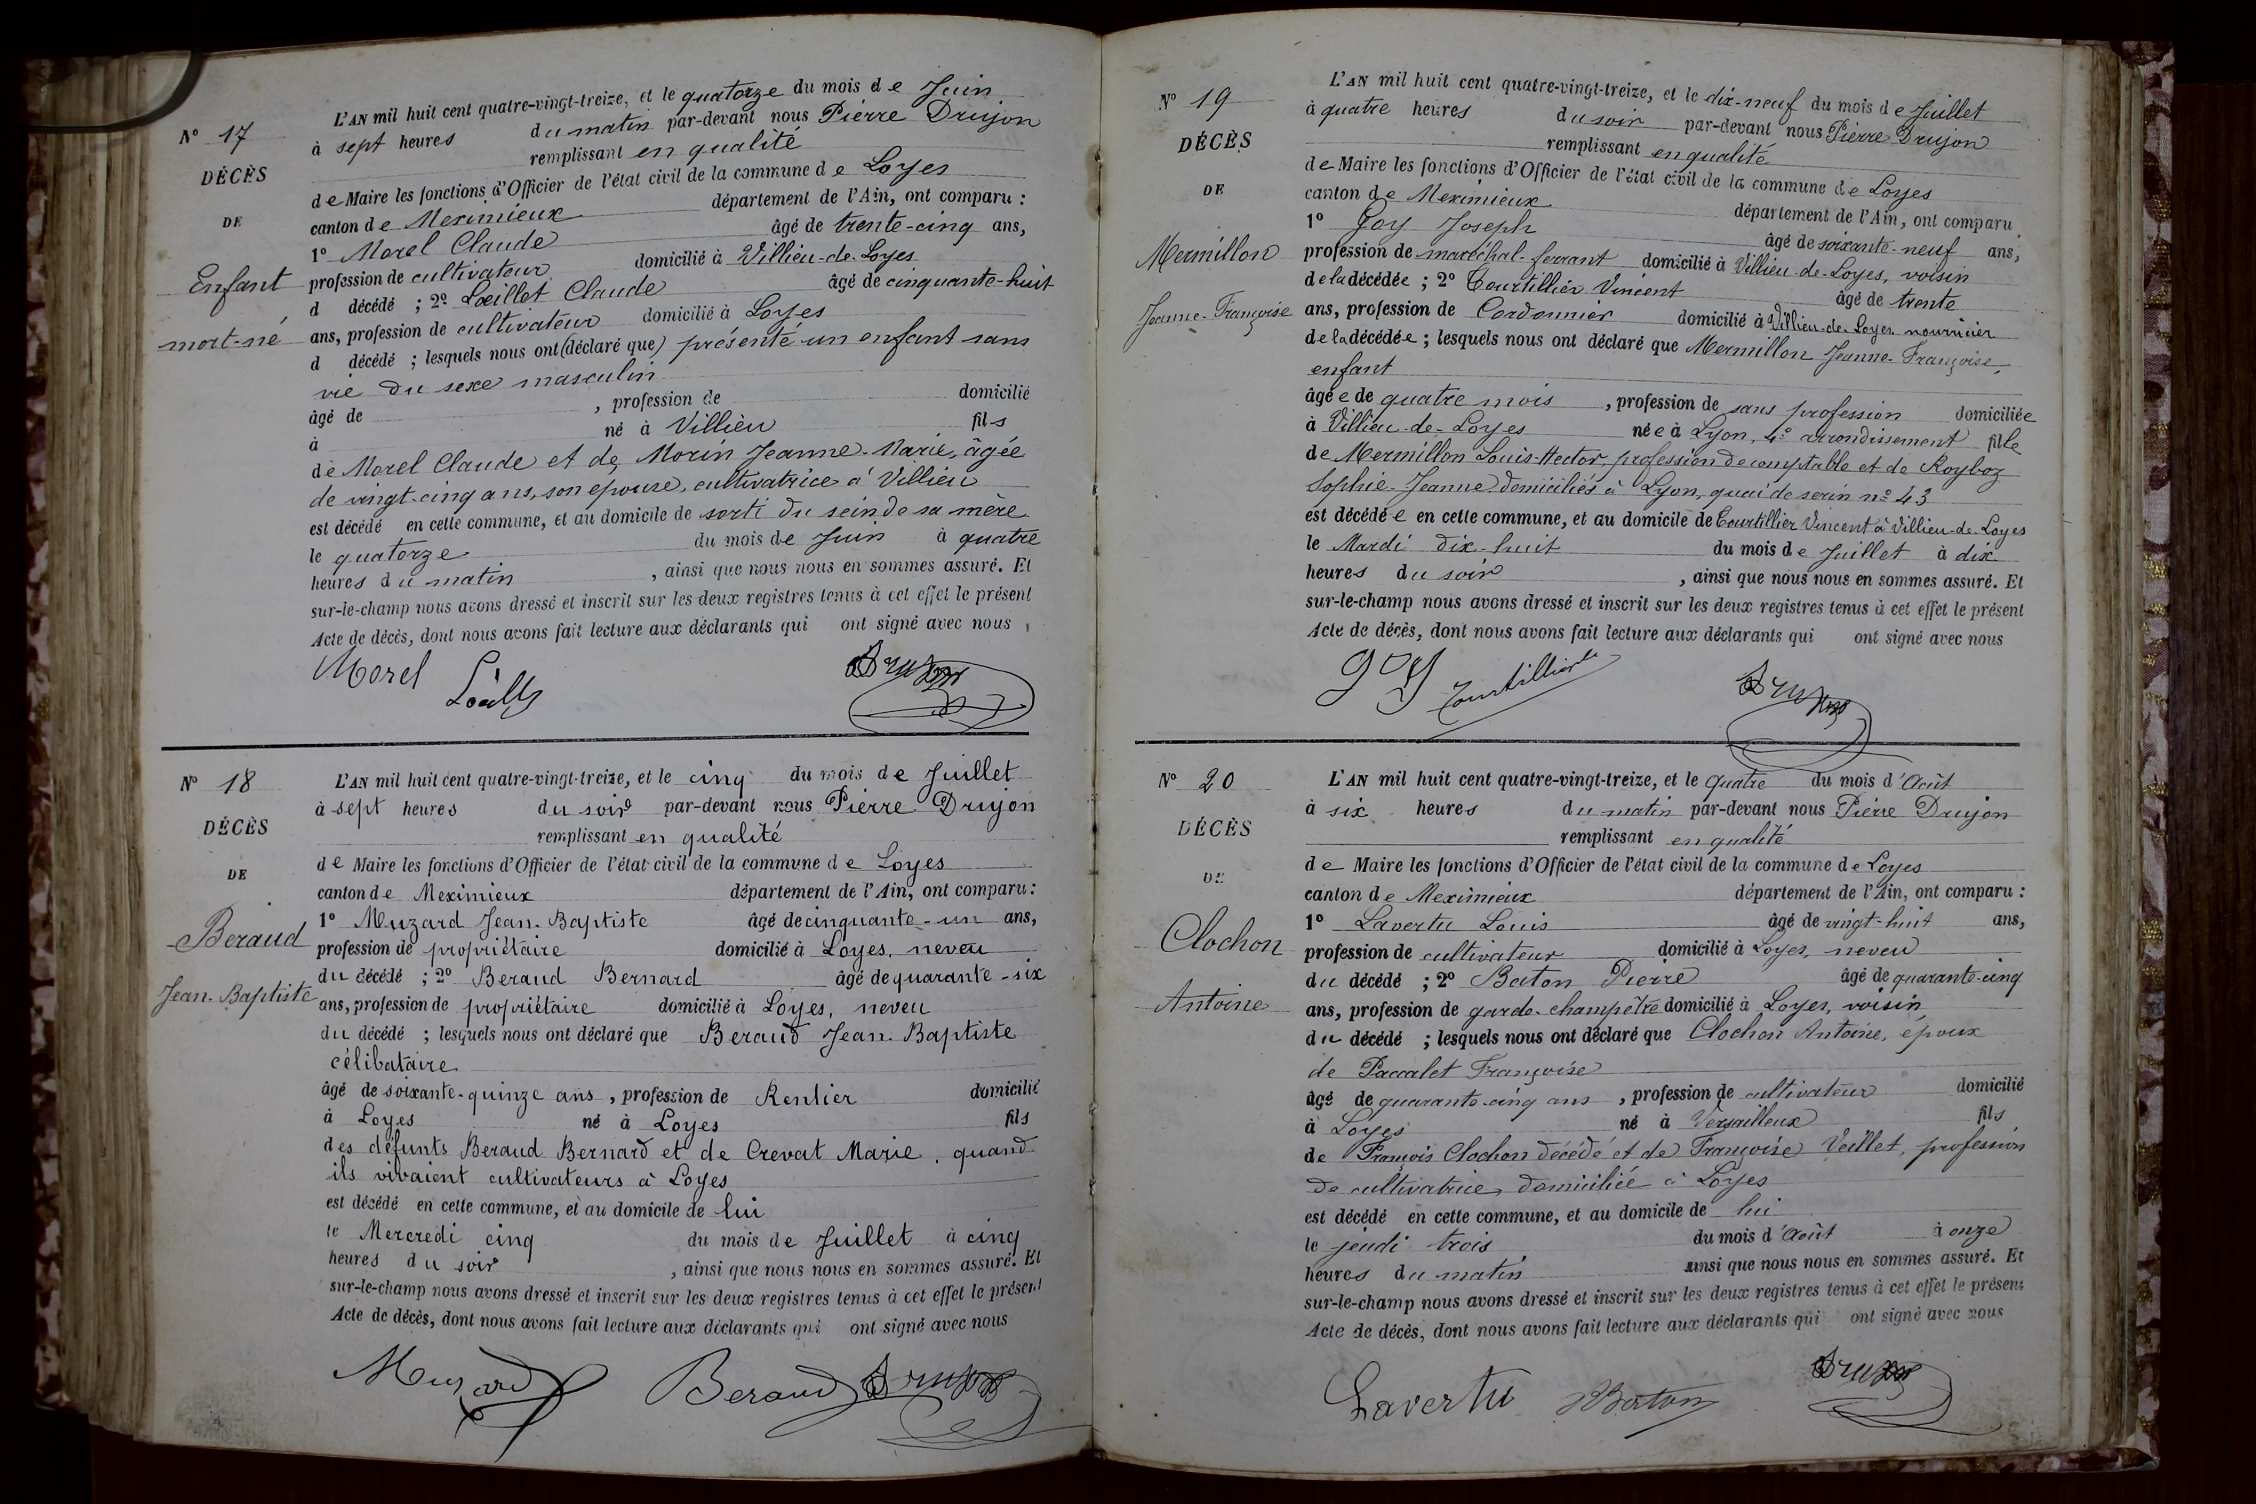 N° 17
DÉCÈS
DE
Enfant
mort-né
L'AN mil huit cent quatre-vingt-treize, et le quatorze du mois de Juin
à sept heures du matin par-devant nous Pierre Drujon
remplissant en qualité
de Maire les fonctions d'Officier de l'état civil de la commune de Loyes
canton de Meximieux département de l'Ain, ont comparu :
1° Morel Claude âgé de trente-cinq ans,
profession de cultivateur domicilié à Villieu-de-Loyes
d décédé ; 2° Lœillet Claude âgé de cinquante-huit
ans, profession de cultivateur domicilié à Loyes
d décédé ; lesquels nous ont (déclaré que) présenté un enfant sans
vie du sexe masculin
âgé de , profession de domicilié
à né à Villieu fils
de Morel Claude et de Morin Jeanne-Marie, âgée
de vingt-cinq ans, son épouse, cultivatrice à Villieu
est décédé en cette commune, et au domicile de sorti du sein de sa mère
le quatorze du mois de Juin à quatre
heures du matin , ainsi que nous nous en sommes assuré. Et
sur-le-champ nous avons dressé et inscrit sur les deux registres tenus à cet effet le présent
Acte de décès, dont nous avons fait lecture aux déclarants qui ont signé avec nous ,
Morel Drujon
N° 18
DÉCÈS
DE
Beraud
Jean-Baptiste
L'AN mil huit cent quatre-vingt-treize, et le cinq du mois de Juillet
à sept heures du soir par-devant nous Pierre Drujon
remplissant en qualité
de Maire les fonctions d'Officier de l'état civil de la commune de Loyes
canton de Meximieux département de l'Ain, ont comparu :
1° Muzard Jean-Baptiste âgé de cinquante-un ans,
profession de propriétaire domicilié à Loyes, neveu
du décédé ; 2° Beraud Bernard âgé de quarante-six
ans, profession de propriétaire domicilié à Loyes, neveu
du décédé ; lesquels nous ont déclaré que Beraud Jean-Baptiste
célibataire
âgé de soixante-quinze ans , profession de Rentier domicilié
à Loyes né à Loyes fils
des défunts Beraud Bernard et de Crevat Marie, quand
ils vivaient cultivateurs à Loyes
est décédé en cette commune, et au domicile de lui
le Mercredi cinq du mois de Juillet à cinq
heures du soir , ainsi que nous nous en sommes assuré. Et
sur-le-champ nous avons dressé et inscrit sur les deux registres tenus à cet effet le présent
Acte de décès, dont nous avons fait lecture aux déclarants qui ont signé avec nous
Muzard Beraud Drujon
N° 19
DÉCÈS
DE
Mermillon
Jeanne-Françoise
L'AN mil huit cent quatre-vingt-treize, et le dix-neuf du mois de Juillet
à quatre heures du soir par-devant nous Pierre Drujon
remplissant en qualité
de Maire les fonctions d'Officier de l'état civil de la commune de Loyes
canton de Meximieux département de l'Ain, ont comparu
1° Goy Joseph âgé de soixante-neuf ans,
profession de maréchal-ferrant domicilié à Villieu-de-Loyes, voisin
de la décédée ; 2° Tourtillier Vincent âgé de trente
ans, profession de Cordonnier domicilié à Villieu-de-Loyes nourricier
de la décédée ; lesquels nous ont déclaré que Mermillon Jeanne-Françoise,
enfant
âgée de quatre mois , profession de sans profession domiciliée
à Villieu-de-Loyes née à Lyon, 4e arrondissement fille
de Mermillon Louis-Hector, profession de comptable et de Royboz
Sophie-Jeanne domiciliés à Lyon, quai de serin n° 43
est décédée en cette commune, et au domicile de Tourtillier Vincent à Villieu-de-Loyes
le Mardi dix-huit du mois de Juillet à dix
heures du soir , ainsi que nous nous en sommes assuré. Et
sur-le-champ nous avons dressé et inscrit sur les deux registres tenus à cet effet le présent
Acte de décès, dont nous avons fait lecture aux déclarants qui ont signé avec nous
goy Tourtillier Drujon
N° 20
DÉCÈS
DE
Clochon
Antoine
L'AN mil huit cent quatre-vingt-treize, et le quatre du mois d'Août
à six heures du matin par-devant nous Pierre Drujon
remplissant en qualité
de Maire les fonctions d'Officier de l'état civil de la commune de Loyes
canton de Meximieux département de l'Ain, ont comparu :
1° Lavertu Louis âgé de vingt-huit ans,
profession de cultivateur domicilié à Loyes, neveu
du décédé ; 2° Baton Pierre âgé de quarante-cinq
ans, profession de garde-champêtre domicilié à Loyes, voisin
du décédé ; lesquels nous ont déclaré que Clochon Antoine, époux
de Paccalet Françoise
âgé de quarante-cinq ans , profession de cultivateur domicilié
à Loyes né à Versailleux fils
de François Clochon décédé et de Françoise Veillet, profession
de cultivatrice, domiciliée à Loyes
est décédé en cette commune, et au domicile de lui
le jeudi trois du mois d'Août à onze
heures du matin ainsi que nous nous en sommes assuré. Et
sur-le-champ nous avons dressé et inscrit sur les deux registres tenus à cet effet le présent
Acte de décès, dont nous avons fait lecture aux déclarants qui ont signé avec nous
Lavertu Baton Drujon